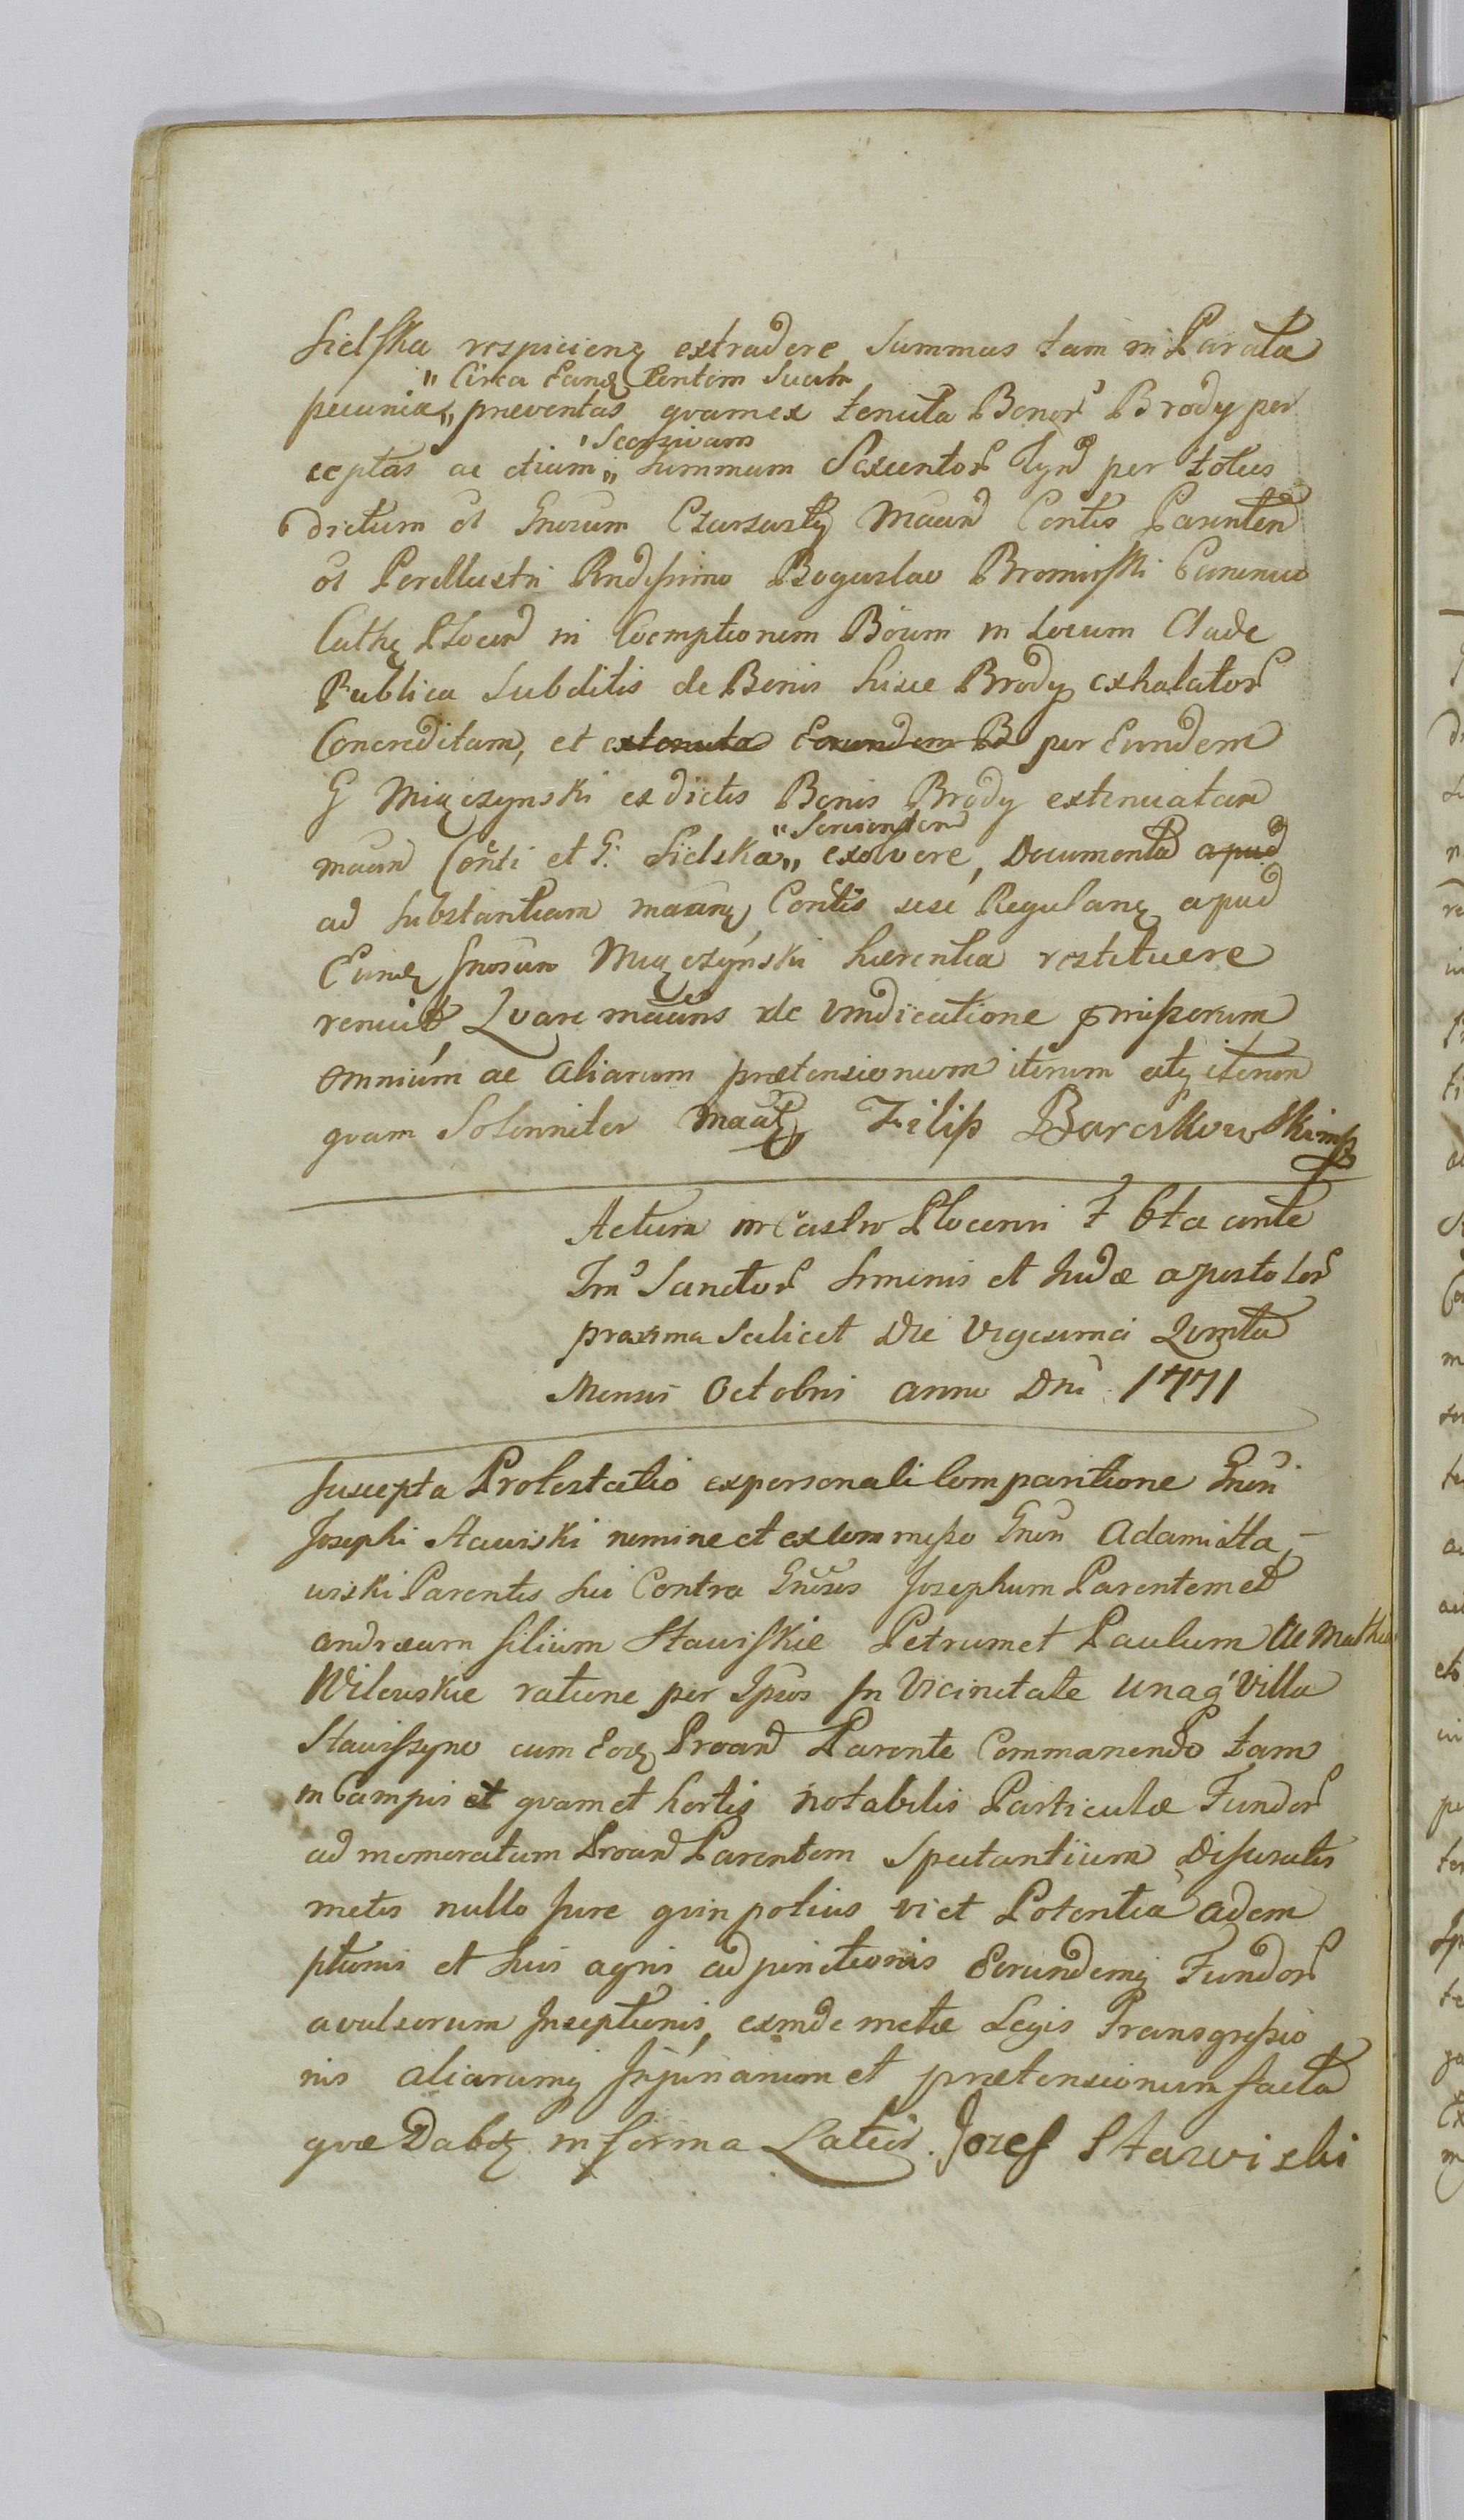 Sielska respicienę extradere summas tam in Parata
" Circa Eund Contem Suam
pecunia „ proventas qvam ex tenuta Bonor Brody per
" Seorsivam
ceptas ac etiam „ summam Sexcentor Tynf per totus
dictum ol Gnosum Czarzasty Maand Contis Parentem
ol Perillustri Rndissimo Boguslao Bromirski Canonico
Cathę Plocen in Coemptionem Boum in Locum Clade
Publica Subditis de Bonis hisce Brody exhalator
Concreditam, et extenuta Eorundem B per Eundem
G Miączynski ex dictis Bonis Brody extenuatam
" Servientem
maan Conti et G. Sielska „ exolvere, Documenta apud
ad Substantiam maanę Contis sese Regulanę apud
Eund Gnosum Miączynski hærentia restituere
renuit Qvare maans de vindicatione præmissorum
omnium ac aliarum prætensionum iterum atq iterum
qvam Solenniter maatę Filip Barcikowski mp
Actum in Castro Plocenn F 6ta ante
Fm Sanctor Simonis et Judæ apostolor
proxima Scilicet Die Vigesima Qvinta
Mensis Octobris anno Dni 1771
Suscepta Protestatio ex personali Comparitione Gnosi
Josephi Stawiski nomine et ex Commisso Gnosi Adami Sta-
wiski Parentis Sui Contra Gnosos Josephum Parentem et
andræam filium Stawiskie Petrum et Paulum ac Mathia
Wilewskie ratione per Ipsos In Vicinitate Unaq Villa
Stawiszyno cum Eodę Proand Parente Commanendo tam
in Campis et qvam et hortis notabilis Particulæ Fundor
ad memoratum Proand Parentem Spectantium Disruatis
metis nullo Jure qvin potius vi et Potentia adem
ptionis et Suis agris adjunctionis Eorundemq Fundor
avulsorum Inseptionis, exinde metæ Legis Transgressio
nis aliarumq Injuriarum et prætensionum facta
qvæ Dabitę in forma Latiori. Jozef Stawiski